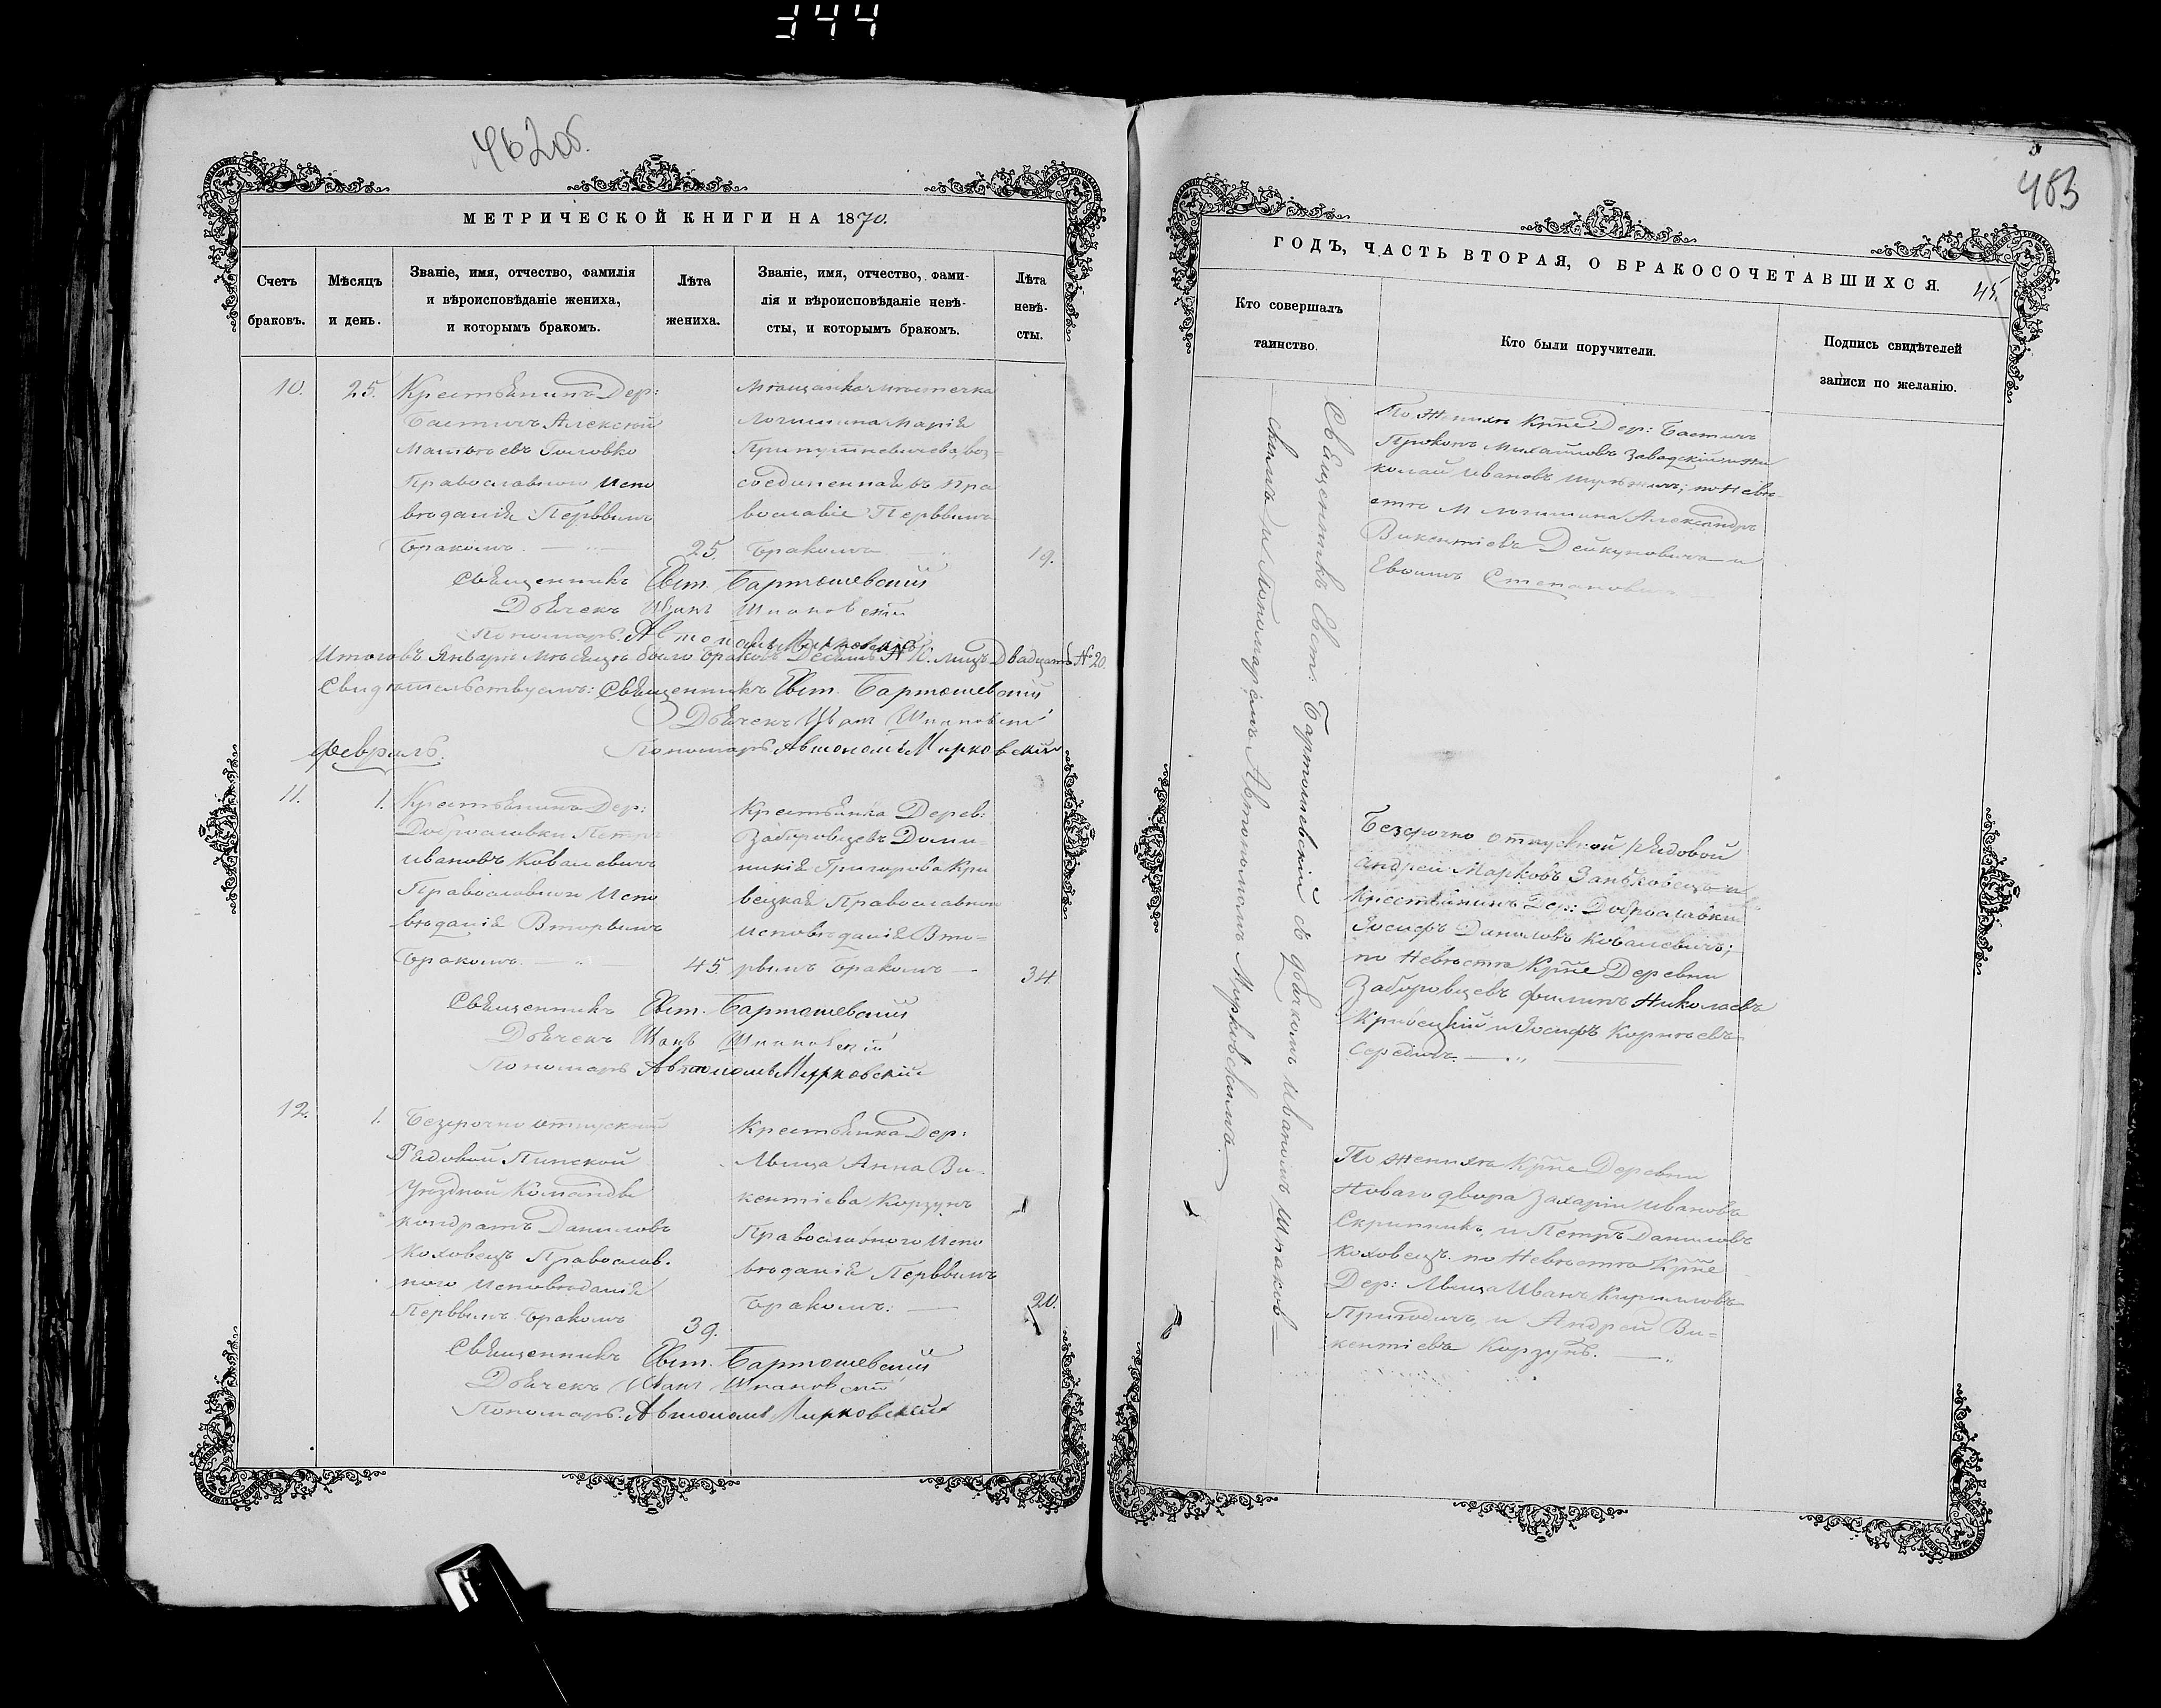 344
462об.
МЕТРИЧЕСКОЙ КНИГИ НА 1870.
Счетъ браковъ.
Мѣсяцъ и день.
Званіе, имя, отчество, фамилія
и вѣроисповѣданіе жениха,
и которымъ бракомъ.
Лѣта
жениха.
Званіе, имя, отчество, фами-
лія и вѣроисповѣданіе невѣ-
сты, и которымъ бракомъ.
Лѣта
невѣ-
сты.
10.
25.
Крестьянинъ Дер:
Бастичъ Алексѣй
Матѣевъ Головко
Православного Испо
вѣданія Первымъ
Бракомъ.
25.
Мѣщанка мѣстечка
Логишина Марія
воз-
соединенная въ Пра
вославіе Первымъ
Бракомъ
19.
Священникъ Евст. Бартошевскій
Дьячекъ Иванъ Шпаковскій
Пономарь Автономъ Мирковскій
Итого въ Январѣ мѣсяцѣ было браковъ Десять № 10. лицъ Двадцать № 20.
Свидѣтельствуемъ: Священникъ Евст. Бартошевскій
Дьячекъ Иванъ Шпаковскій
Февраль.
Пономарь Автономъ Мирковскій
11.
1.
Крестьянинъ Дер:
Доброславки Петръ
Ивановъ Ковалевичъ
Православного Испо
вѣданія Вторымъ
Бракомъ.
45.
Крестьянка Дерев:
Заборовцевъ Доми-
никія Григорова Кри
вецкая Православного
исповѣданія Вто-
рымъ Бракомъ
34
Священникъ Евст. Бартошевскій
Дьячекъ Иванъ Шпаковскій
Пономарь Автономъ Мирковскій
12.
1.
Безсрочно отпускной
Рядовой Пинской
Уѣздной Команды
Кондратъ Даниловъ
Коховецъ Православ-
ного Исповѣданія
Первымъ Бракомъ
39.
Крестьянка Дер:
Мыща Анна Ви-
кентіева Корзунъ
Православного Испо
вѣданія Первымъ
Бракомъ.
20.
Священникъ Евст. Бартошевскій
Дьячекъ Иванъ Шпаковскій
Пономарь Автономъ Мирковскій
463
ГОДЪ, ЧАСТЬ ВТОРАЯ, О БРАКОСОЧЕТАВШИХСЯ.
45.
Кто совершалъ
таинство.
Кто были поручители.
Подпись свидѣтелей
записи по желанію.
Священникъ Евст. Бартошевскій съ дьячкомъ Иваномъ Шпаков-
скимъ и Пономаремъ Автономомъ Мирковскимъ.
По женихѣ Кр̃не Дер: Бастичъ
Прокопъ Михайловъ Завадскій и Ни
колай Ивановъ по Невѣ-
стѣ М Логишина Александръ
Викентіевъ Дейкуновичъ и
Степановичъ
Безсрочно отпускной рядовой
Андрей Марковъ и
Крестьянинъ Дер: Доброславки
Іосифъ Даниловъ Ковалевичъ;
по Невѣстѣ Кр̃не Деревни
Заборовцевъ Филипъ Николаевъ
Кривецкій и Іосифъ Корнѣевъ
Середичъ.
По женихѣ Кр̃не Деревни
Новаго двора Захарій Ивановъ
Скрипникъ, и Петръ Даниловъ
Коховецъ. по Невѣстѣ Кр̃не
Дер: Мыща Иванъ Кириловъ
Пригодичъ, и Андрей Ви-
кентіевъ Корзунъ.